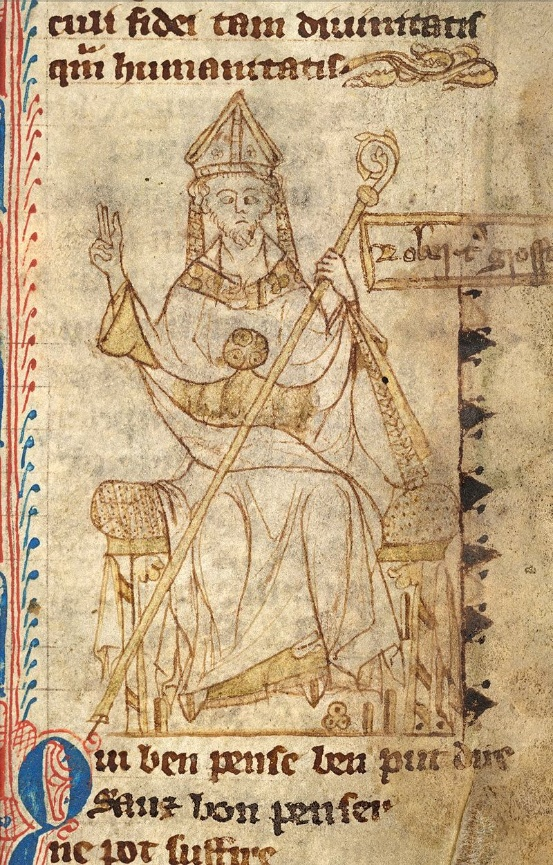 culi fidei tam diuinitatis
qm̄ humanitatis.
Robert grosse
Qui ben pense ben put dire
Sanz bon penser
ne pot suffire